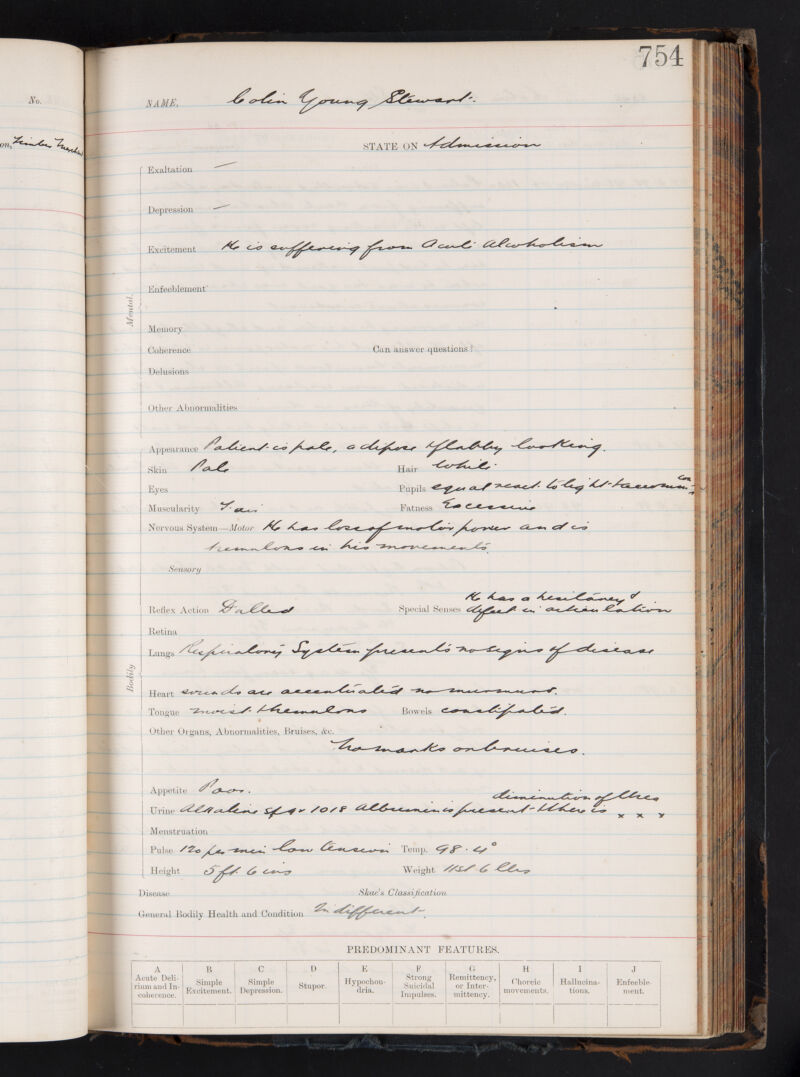 754
No.
on, Timber Merchant
NAME, Colin Young Stewart.
STATE ON Admission
Mental.
Exaltation —
Depression —
Excitement He is suffering from Acute Alcoholism
Enfeeblement
Memory
Coherence Can answer questions?
Delusions
Other Abnormalities
Bodily
Appearance Patient is pale, adipose & flabby looking.
Skin Pale Hair White
Eyes Pupils equal react to light &
Muscularity Fair Fatness Excessive
Nervous System—Motor He has loss of motor power and is
tremulous in his movements.
Sensory
He has a hesitancy &
Reflex Action Dulled Special Senses defect in articulation
Retina
Lungs Respiratory System presents no signs of disease
Heart sounds are accentuated no murmurs.
Tongue moist & tremulous Bowels constipated.
Other Organs, Abnormalities, Bruises, &c.
No marks or bruises.
Appetite Poor.
diminution of Urea
Urine Alkaline Sp gr 1018 Albumin is present & there is x x x
Menstruation
Pulse 120 per min low tension Temp. 98.4°
Height 5 ft 6 ins Weight 11st 6 lbs
Disease Skae's Classification
General Bodily Health and Condition Indifferent.
PREDOMINANT FEATURES.
A B C D E F G H I J
Acute Delirium and Incoherence. Simple Excitement. Simple Depression. Stupor. Hypochondria. Strong Suicidal Impulses. Remittency, or Intermittency. Choreic movements. Hallucinations. Enfeeblement.